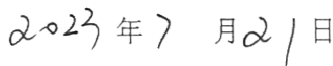 2023年7月21日